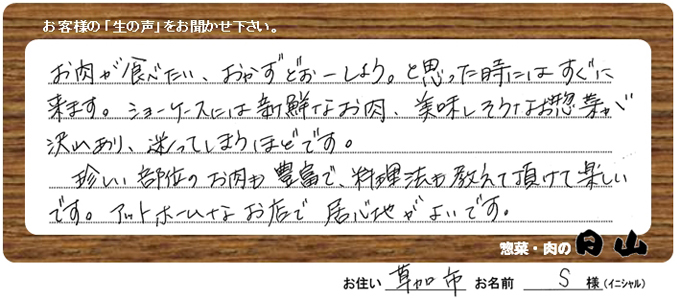 お客様の「生の声」をお聞かせ下さい。
お肉が食べたい、おかずどおーしよう。と思った時にはすぐに
来ます。ショーケースには新鮮なお肉、美味しそうなお惣菜が
沢山あり、迷ってしまうほどです。
珍しい部位のお肉も豊富で、料理法も教えて頂けて楽しい
です。アットホームなお店で居心地がよいです。
惣菜・肉の日山
お住い 草加市 お名前 S 様(イニシャル)